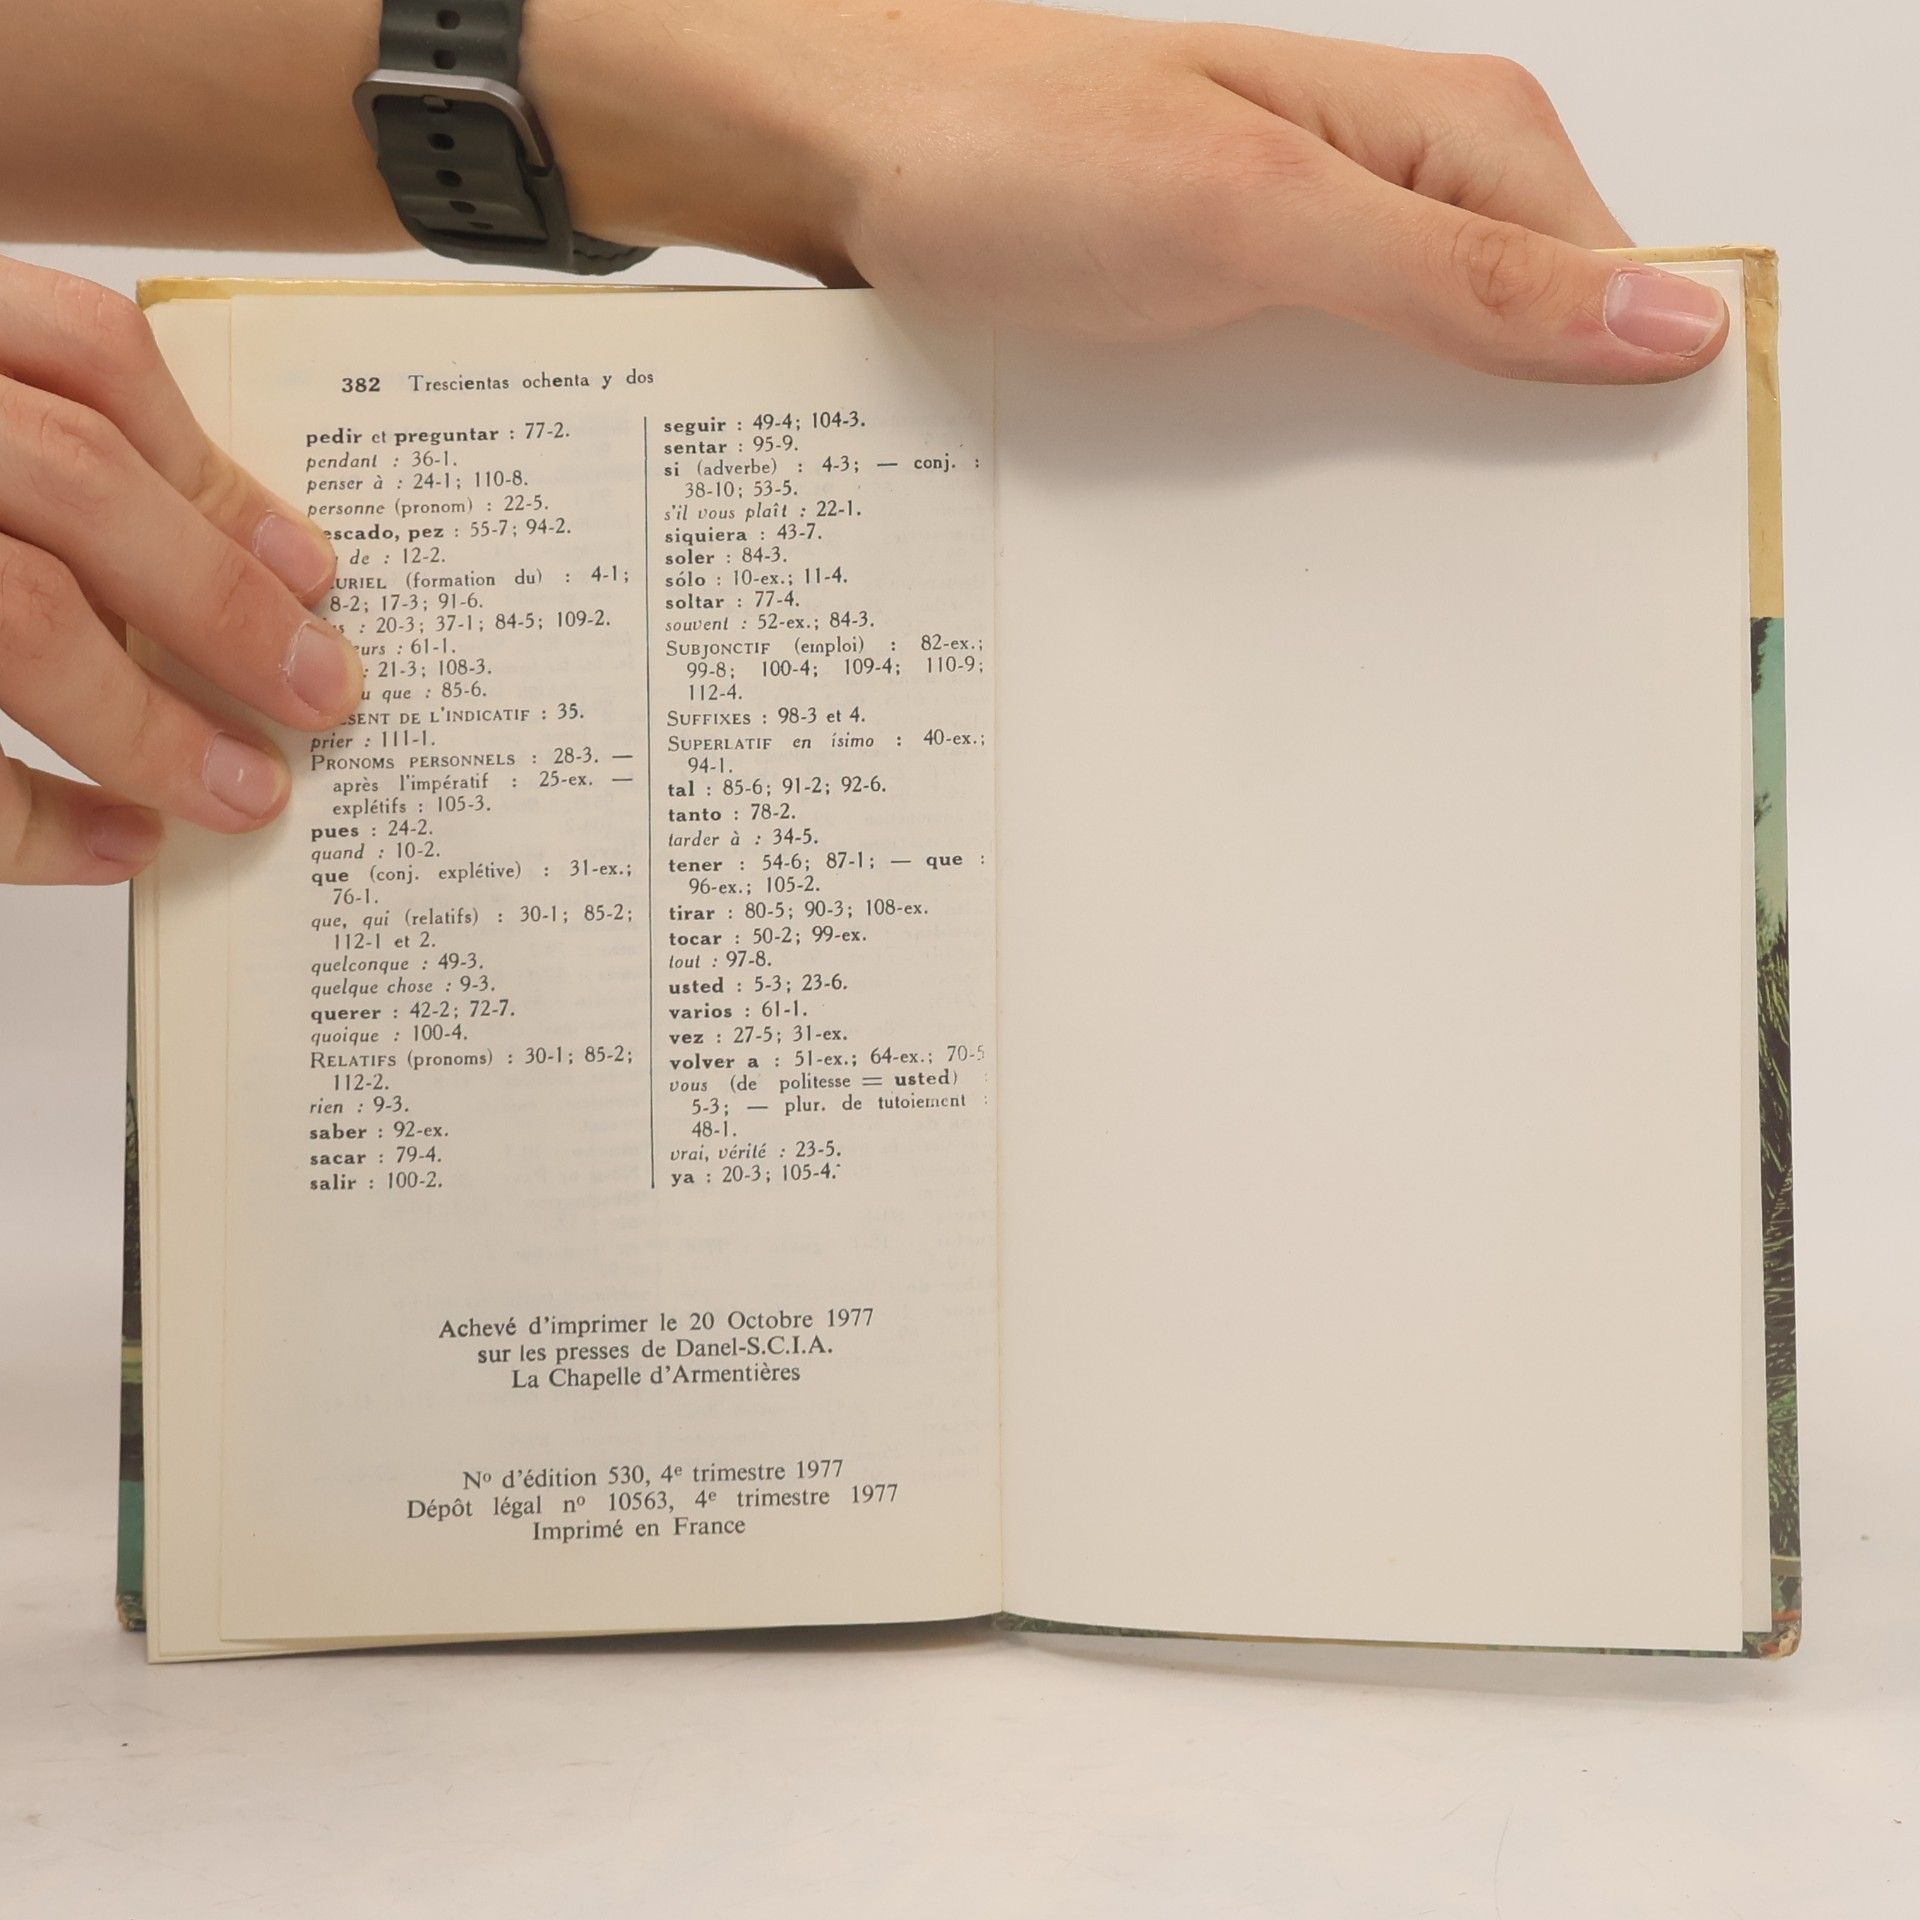 382 Trescientas ochenta y dos
pedir et preguntar : 77-2.
pendant : 36-1.
penser à : 24-1; 110-8.
personne (pronom) : 22-5.
escado, pez : 55-7; 94-2.
de : 12-2.
URIEL (formation du) : 4-1;
8-2; 17-3; 91-6.
: 20-3; 37-1; 84-5; 109-2.
eurs : 61-1.
: 21-3; 108-3.
u que : 85-6.
SENT DE L'INDICATIF : 35.
prier : 111-1.
PRONOMS PERSONNELS : 28-3. —
après l'impératif : 25-ex. —
explétifs : 105-3.
pues : 24-2.
quand : 10-2.
que (conj. explétive) : 31-ex.;
76-1.
que, qui (relatifs) : 30-1; 85-2;
112-1 et 2.
quelconque : 49-3.
quelque chose : 9-3.
querer : 42-2; 72-7.
quoique : 100-4.
RELATIFS (pronoms) : 30-1; 85-2;
112-2.
rien : 9-3.
saber : 92-ex.
sacar : 79-4.
salir : 100-2.
seguir : 49-4; 104-3.
sentar : 95-9.
si (adverbe) : 4-3; — conj. :
38-10; 53-5.
s'il vous plaît : 22-1.
siquiera : 43-7.
soler : 84-3.
sólo : 10-ex.; 11-4.
soltar : 77-4.
souvent : 52-ex.; 84-3.
SUBJONCTIF (emploi) : 82-ex.;
99-8; 100-4; 109-4; 110-9;
112-4.
SUFFIXES : 98-3 et 4.
SUPERLATIF en ísimo : 40-ex.;
94-1.
tal : 85-6; 91-2; 92-6.
tanto : 78-2.
tarder à : 34-5.
tener : 54-6; 87-1; — que :
96-ex.; 105-2.
tirar : 80-5; 90-3; 108-ex.
tocar : 50-2; 99-ex.
tout : 97-8.
usted : 5-3; 23-6.
varios : 61-1.
vez : 27-5; 31-ex.
volver a : 51-ex.; 64-ex.; 70-5
vous (de politesse = usted) :
5-3; — plur. de tutoiement :
48-1.
vrai, vérité : 23-5.
ya : 20-3; 105-4.
Achevé d'imprimer le 20 Octobre 1977
sur les presses de Danel-S.C.I.A.
La Chapelle d'Armentières
Nº d'édition 530, 4e trimestre 1977
Dépôt légal nº 10563, 4e trimestre 1977
Imprimé en France